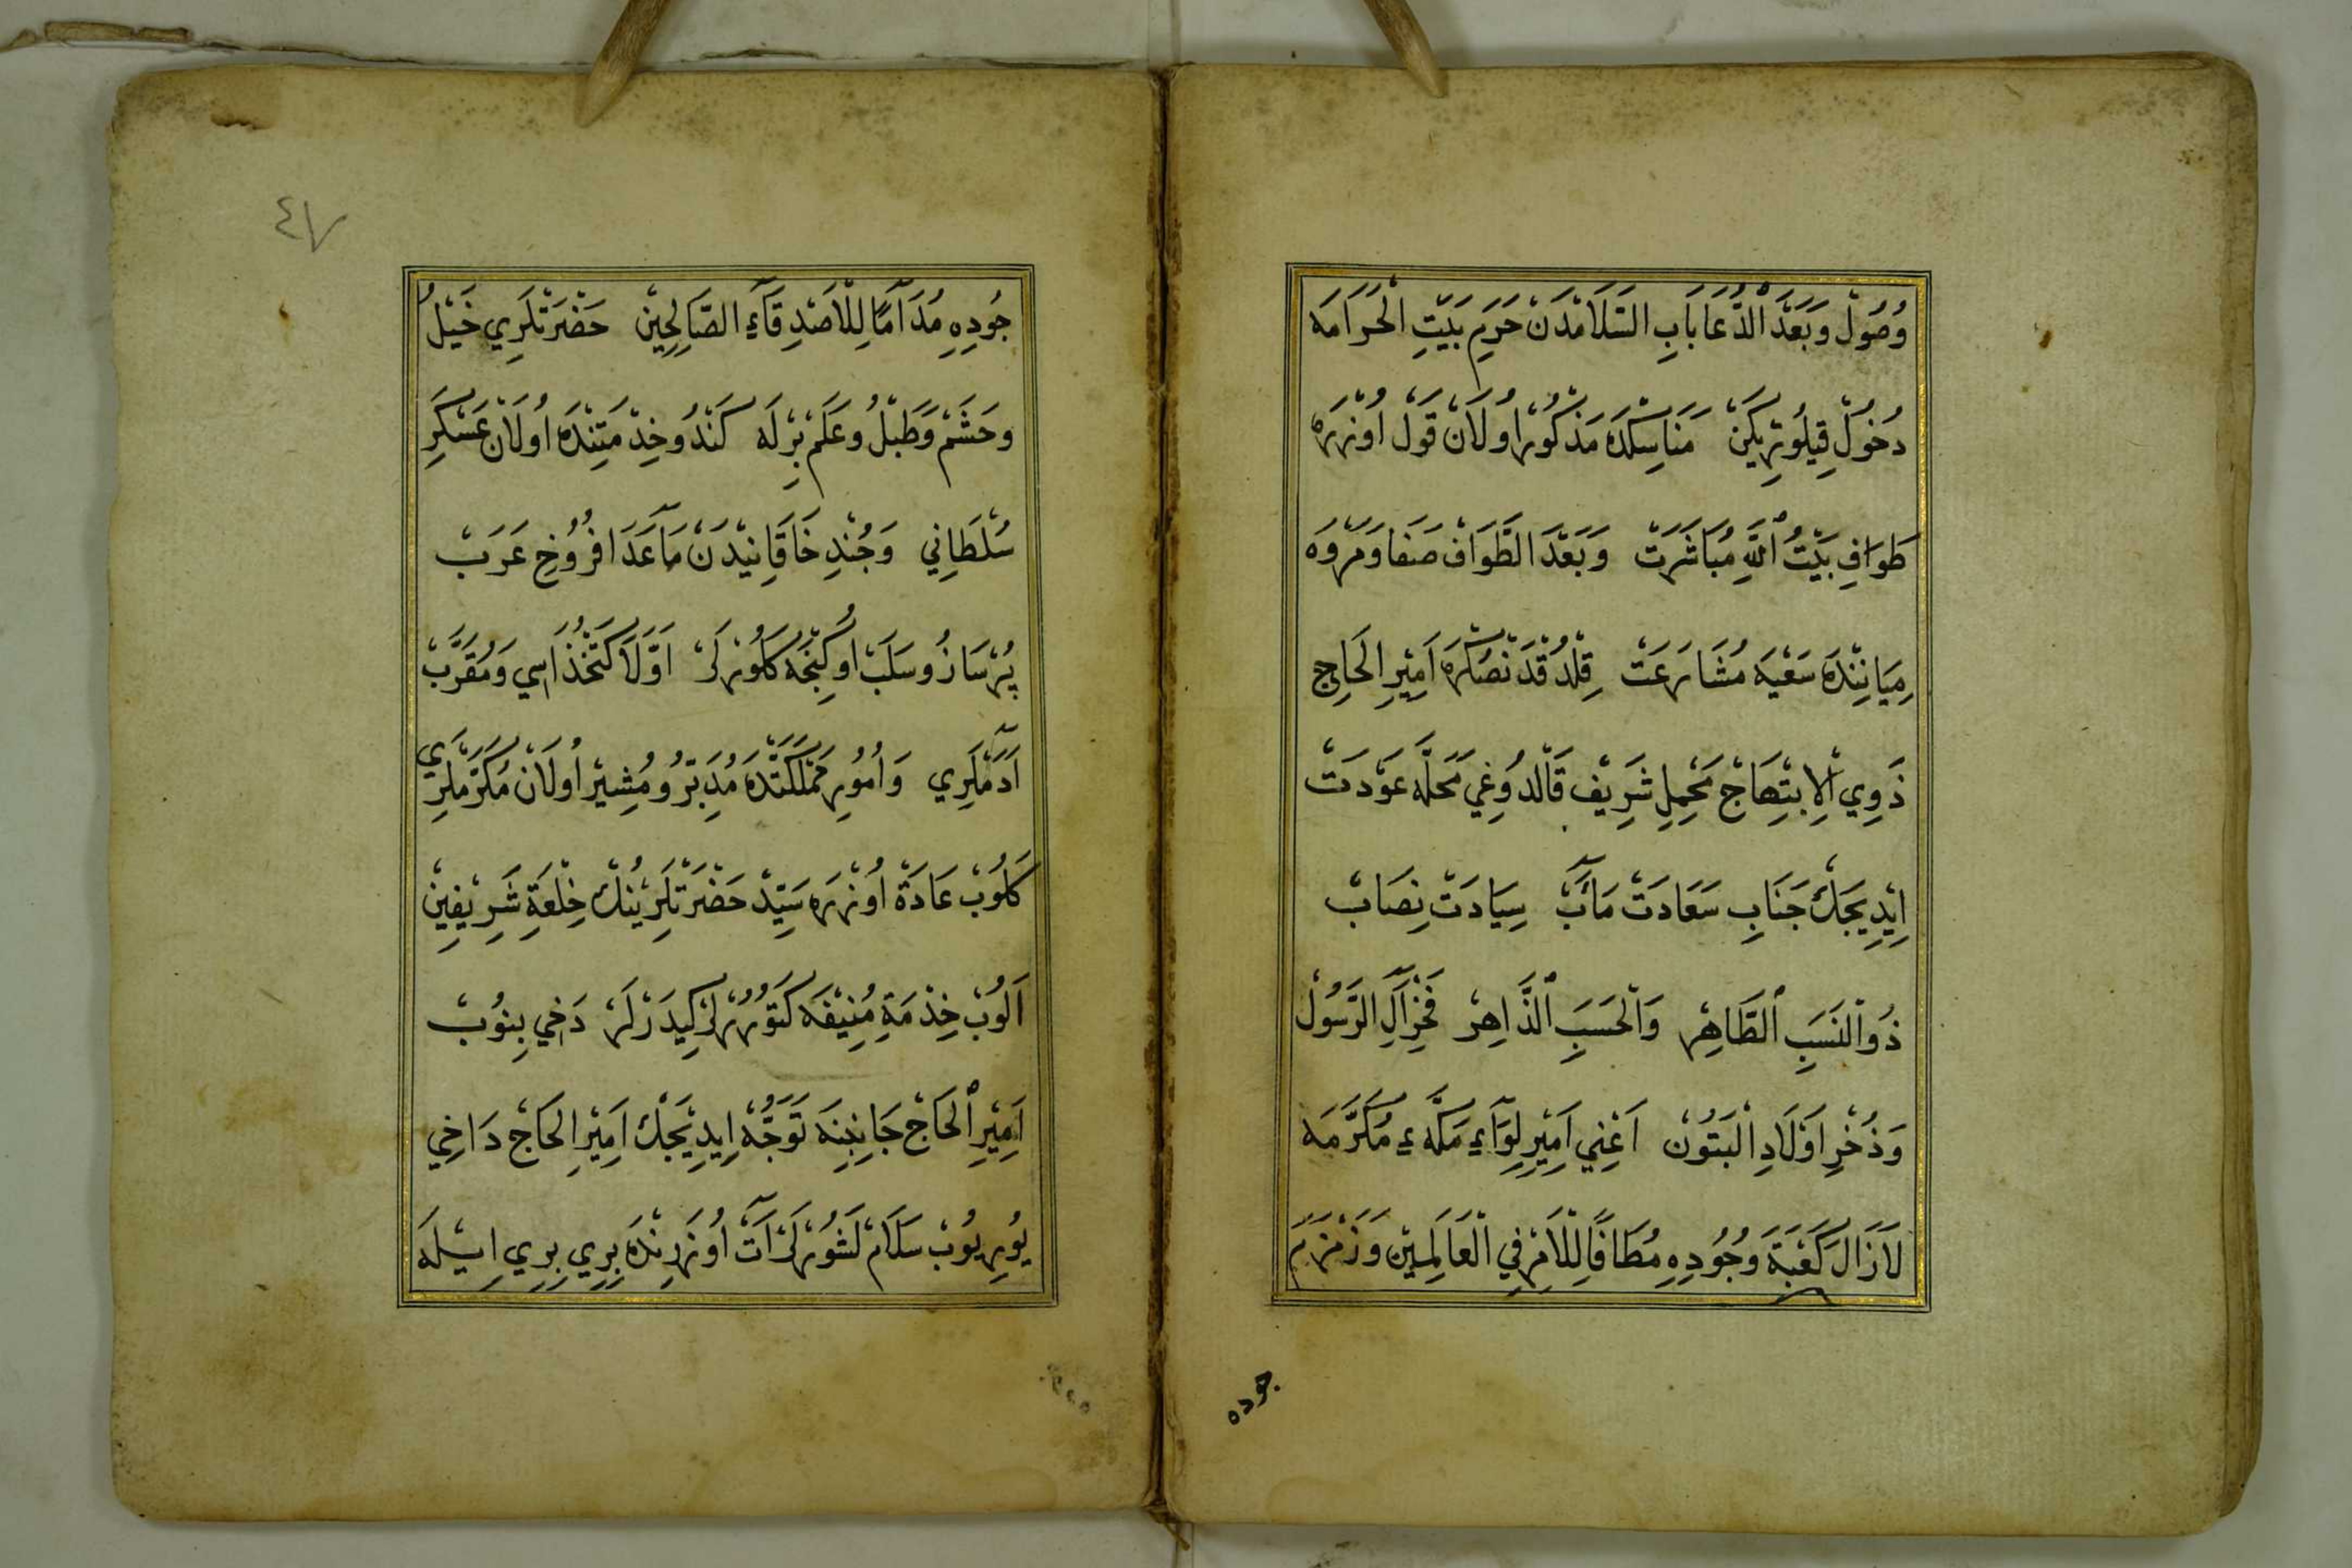 وُصُولْ وَبَعْدَ الدُّعَا بَابِ السَّلَامْدَنْ حَرَمِ بَيْتِ الْحَرَامَه
دُخُولْ قِيلُورِيكَنْ مَنَاسِكْدَه مَذْكُورْ اُولَانْ قَوْلْ اُوزَرَه
طَوَافِ بَيْتُ اللّٰهِ مُبَاشَرَتْ وَبَعْدَ الطَّوَافْ صَفَا وَمَرْوَه
مِيَانِنْدَه سَعْيَه مُشَارَعَتْ قِلْدُقْدَنْصُكْرَه اَمِيرِ الْحَاجِ
ذَوِي الْاِبْتِهَاجْ مَحْمِلِ شَرِيفْ قَالْدُوغِي مَحَلَّه عَوْدَتْ
اِيْدِيجَكْ جَنَابِ سَعَادَتْ مَآبْ سِيَادَتْ نِصَابْ
ذُو النَّسَبِ الطَّاهِرْ وَالْحَسَبِ الذَّاهِرْ فَخْرِ آلِ الرَّسُولْ
وَذُخْرِ اَوْلَادِ الْبَتُونْ اَعْنِي اَمِيرِ لِوَاءِ مَكَّهءِ مُكَرَّمَه
لَازَالَ كَعْبَةَ وُجُودِهِ مُطَافًا لِلْاَمْرِ فِي الْعَالَمِينْ وَزَمْزَمَ
جوده
٤٧
جُودِهِ مُدَامًا لِلْاَصْدِقَاءِ الصَّالِحِينْ حَضْرَتْلَرِي خَيْلُ
وحَشَمْ وَطَبْلُ وعَلَمْ بِرْلَه كَنْدُو خِدْمَتِنْدَه اُولَانْ عَسْكَرِ
سُلْطَانِي وَجُنْدِ خَاقَانِيدَنْ مَاعَدَا فُرُوخِ عَرَبْ
پُرْسَازُ وسَلَبْ اُوكِنْجَه كَلُورْلَرْ اَوَّلَا كَتْخُذَاسِي وَمُقَرَّبْ
آدَمْلَرِي وَاُمُورِ مَمْلَكَتْدَه مُدَبِّرُ ومُشِيرْ اُولَانْ مُكَرَّمْلَرِي
كَلُوبْ عَادَةْ اُوزَرَه سَيِّدْ حَضْرَتْلَرِينُكْ خِلْعَةِ شَرِيفِينْ
اَلُوبْ خِدْمَةِ مُنِيفَه كَتُورُرْلَرْ كِيدَرْلَرْ دَخِي بِنُوبْ
اَمِيرِ الْحَاجْ جَانِبِنَه تَوَجُّهْ اِيدِيجَكْ اَمِيرِ الْحَاجْ دَاخِي
يُورِيُوبْ سَلَامْ لَشُورْلَرْ آتْ اُوزَرِنْدَه بِرِي بِرِي اِيْلَه